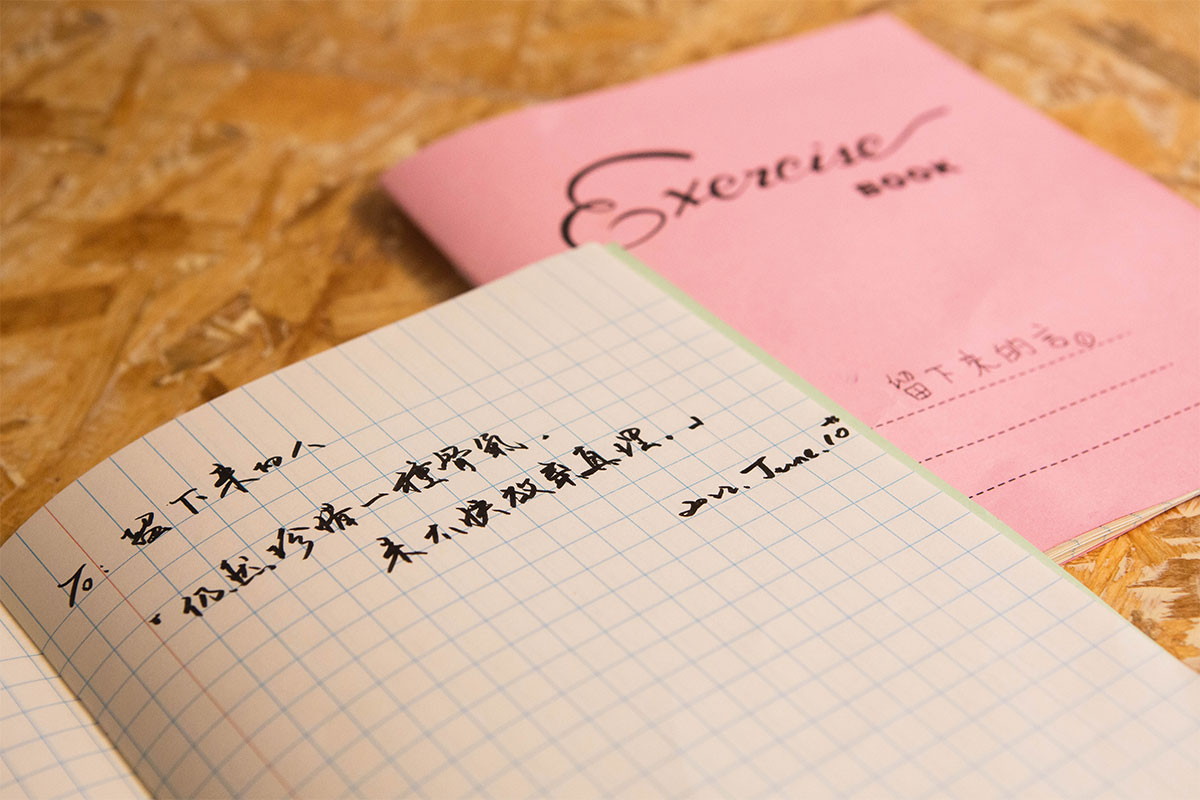 Exercise
BOOK
留下來的言
To: 留下來的人
「仍然珍惜一種骨氣.
放棄真理.」
2022. June. 10th